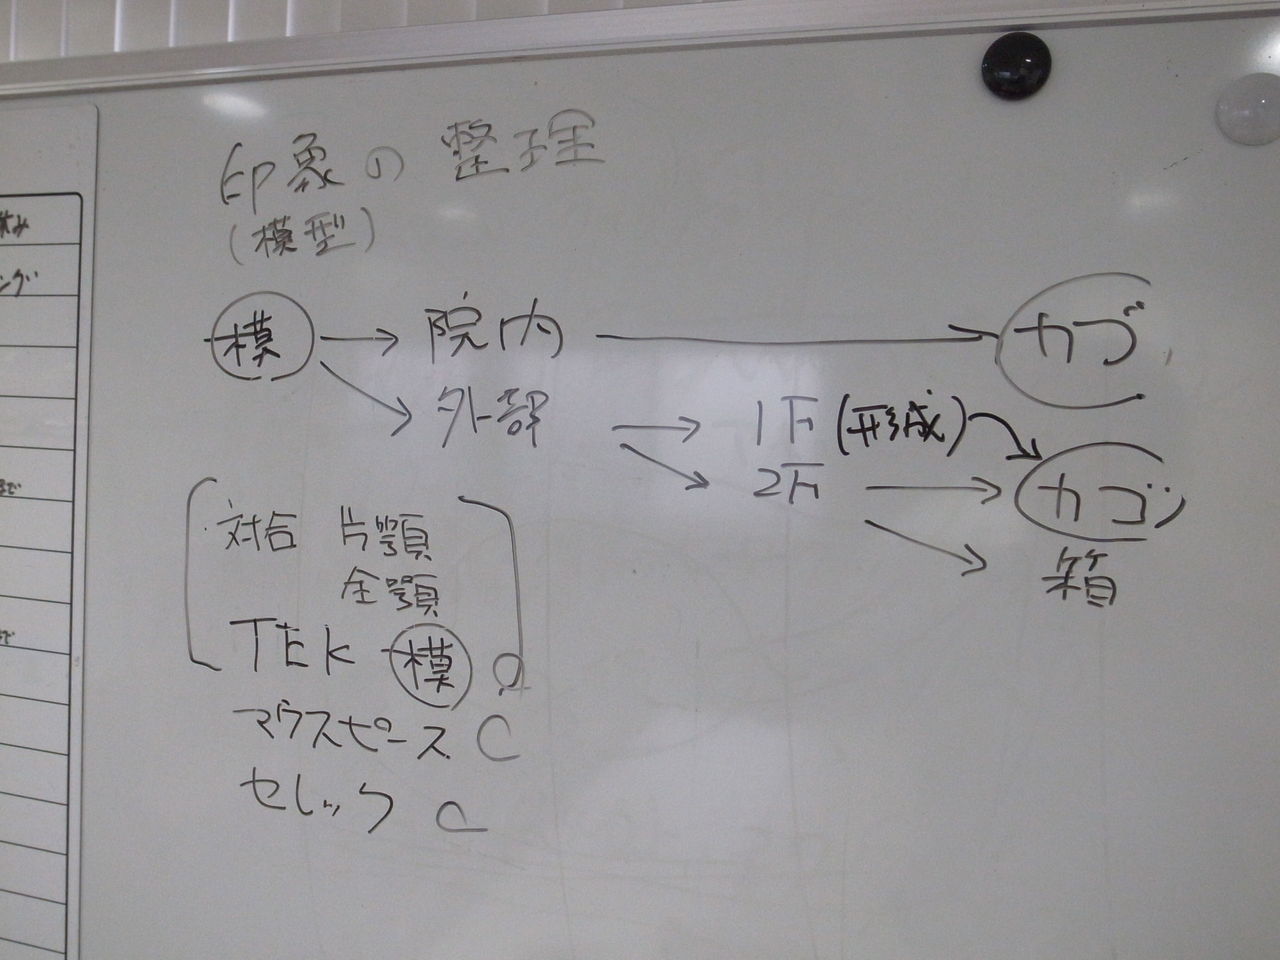 印象の整理
(模型)
模 → 院内 → カゴ
→ 外部 → 1F (形成) → カゴ
→ 2F →
→ 箱
対合 片顎
全顎
TEK 模
マウスピース
セレック
休み
ング
まで